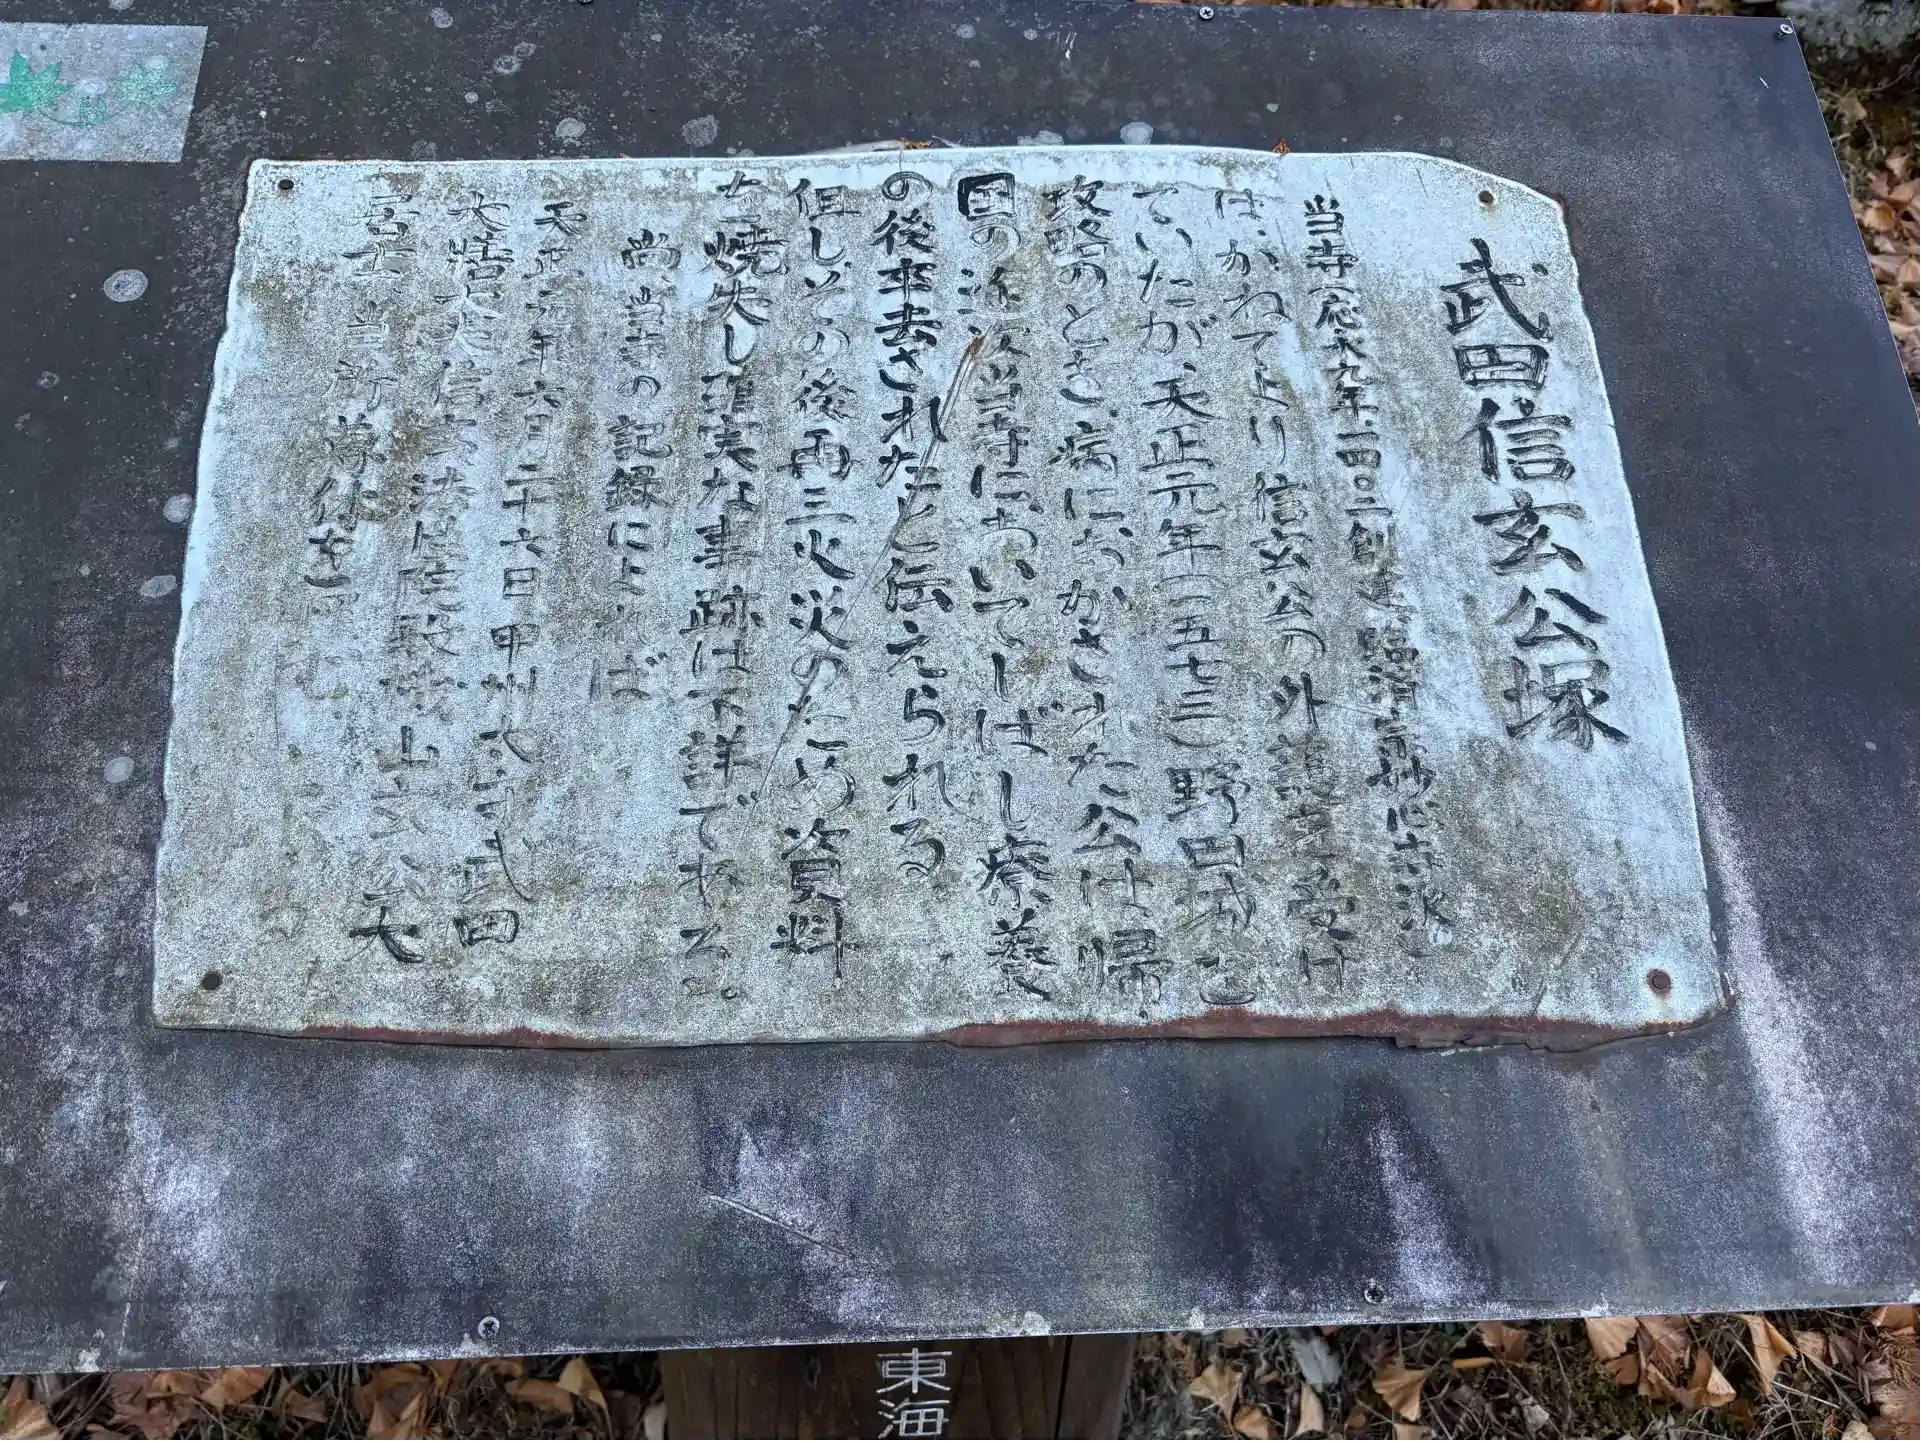 武田信玄公塚
当寺(応永九年 一四〇二創建 臨済宗妙心寺派)
は、かねてより信玄公の外護を受け
ていたが、天正元年(一五七三)野田城を
攻略のとき、病におかされた公は帰
国の途次当寺においてしばし療養
の後卒去されたと伝えられる。
但しその後両三火災のため資料
を焼失し確実な事跡は不詳である。
尚、当寺の記録によれば
天正元年六月二十六日甲州太守武田
大
信玄法性院
山
公大
居士、当所
東海